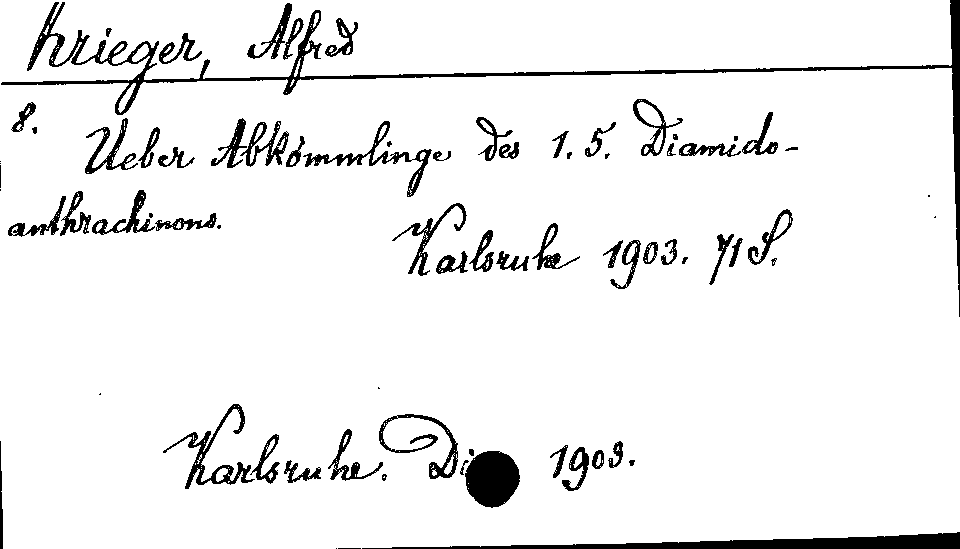 Krieger, Alfred
8.
Ueber Abkömmlinge des 1.5. Diamido-
anthrachinons.
Karlsruhe 1903. 71 S.
Karlsruhe. Di 1903.